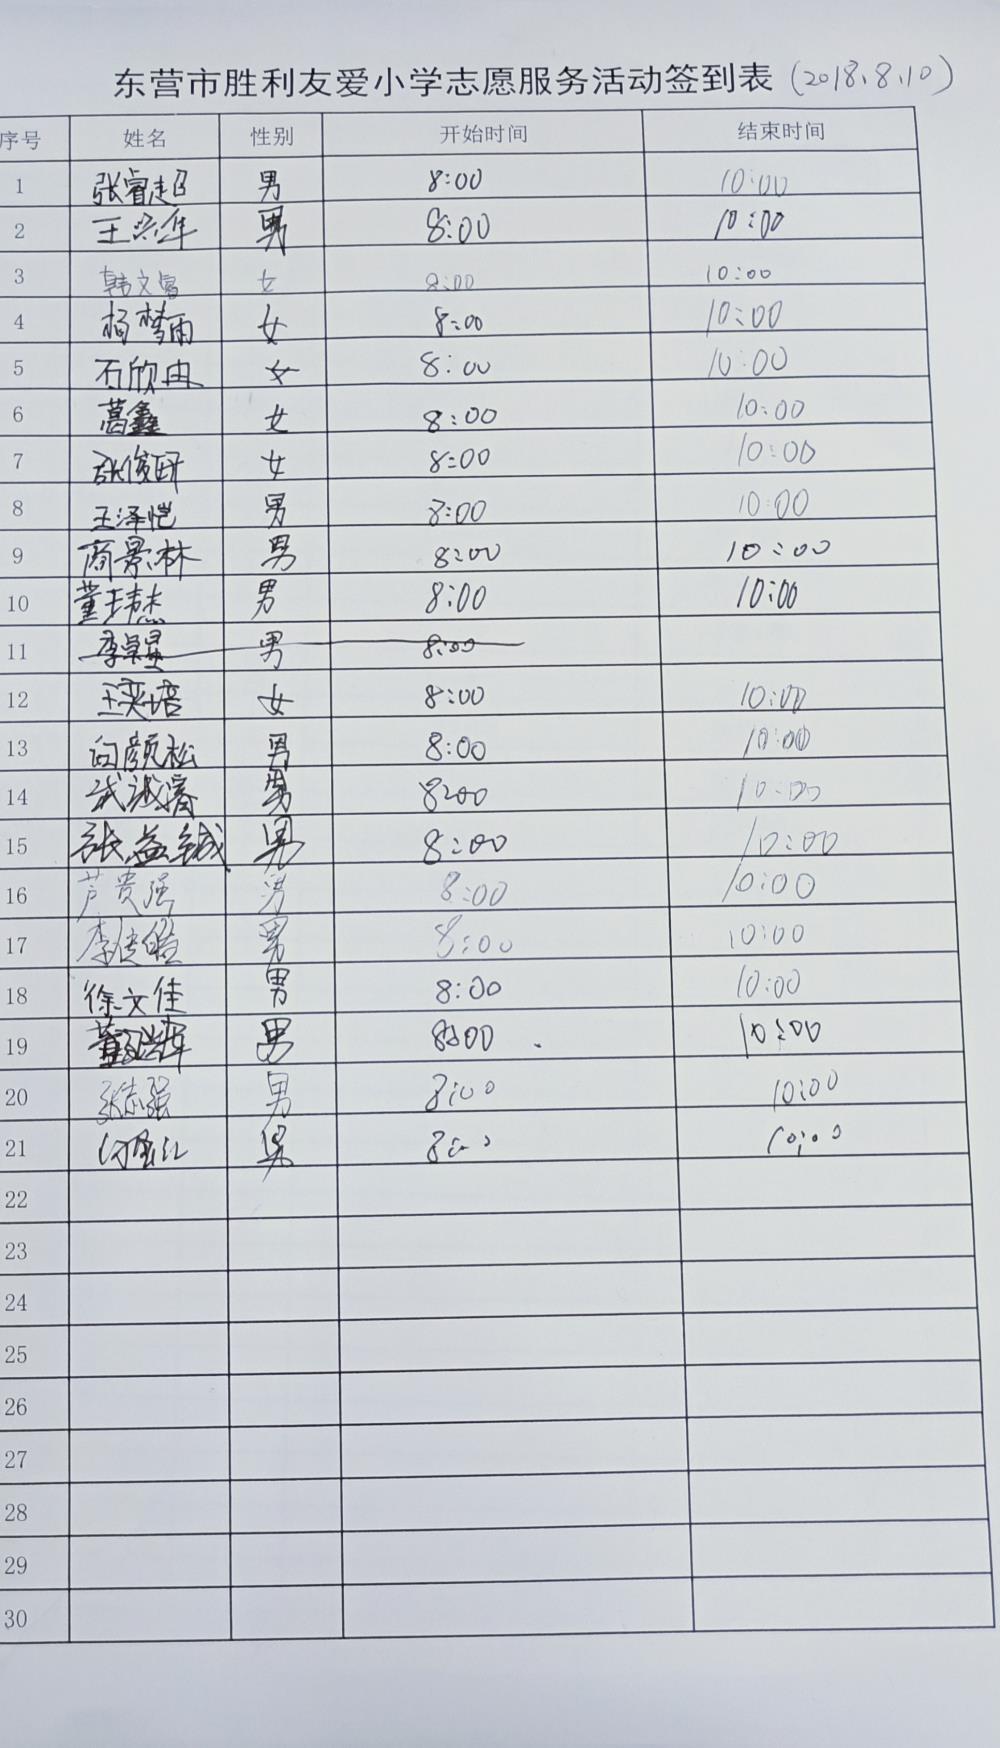 东营市胜利友爱小学志愿服务活动签到表 (2018.8.10)
序号 姓名 性别 开始时间 结束时间
1 张睿超 男 8:00 10:00
2 王兴华 男 8:00 10:00
3 韩文睿 女 8:00 10:00
4 杨梦雨 女 8:00 10:00
5 石欣冉 女 8:00 10:00
6 葛鑫 女 8:00 10:00
7 张俊研 女 8:00 10:00
8 王泽恺 男 8:00 10:00
9 商景林 男 8:00 10:00
10 董玮杰 男 8:00 10:00
11 男 8:00
12 王奕培 女 8:00 10:00
13 白颜松 男 8:00 10:00
14 男 8:00 10:00
15 张益铖 男 8:00 10:00
16 芦贵强 男 8:00 10:00
17 男 8:00 10:00
18 徐文佳 男 8:00 10:00
19 男 8:00 10:00
20 张志强 男 8:00 10:00
21 男 8:00 10:00
22
23
24
25
26
27
28
29
30